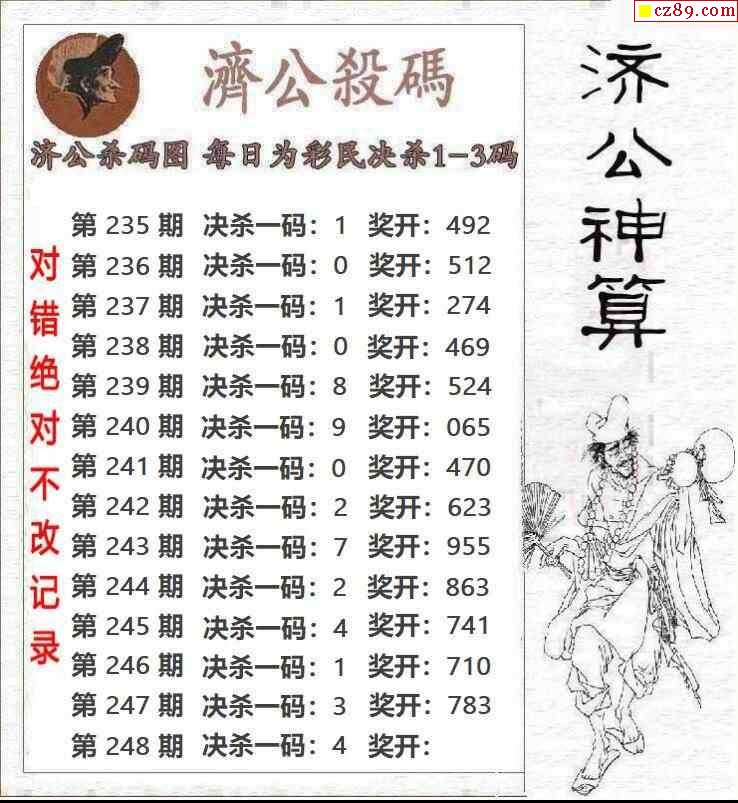 cz89.com
濟公殺碼
济公杀码图 每日为彩民决杀1-3码
第 235 期 决杀一码：1 奖开：492
第 236 期 决杀一码：0 奖开：512
第 237 期 决杀一码：1 奖开：274
第 238 期 决杀一码：0 奖开：469
第 239 期 决杀一码：8 奖开：524
第 240 期 决杀一码：9 奖开：065
第 241 期 决杀一码：0 奖开：470
第 242 期 决杀一码：2 奖开：623
第 243 期 决杀一码：7 奖开：955
第 244 期 决杀一码：2 奖开：863
第 245 期 决杀一码：4 奖开：741
第 246 期 决杀一码：1 奖开：710
第 247 期 决杀一码：3 奖开：783
第 248 期 决杀一码：4 奖开：
对错绝对不改记录
济公神算